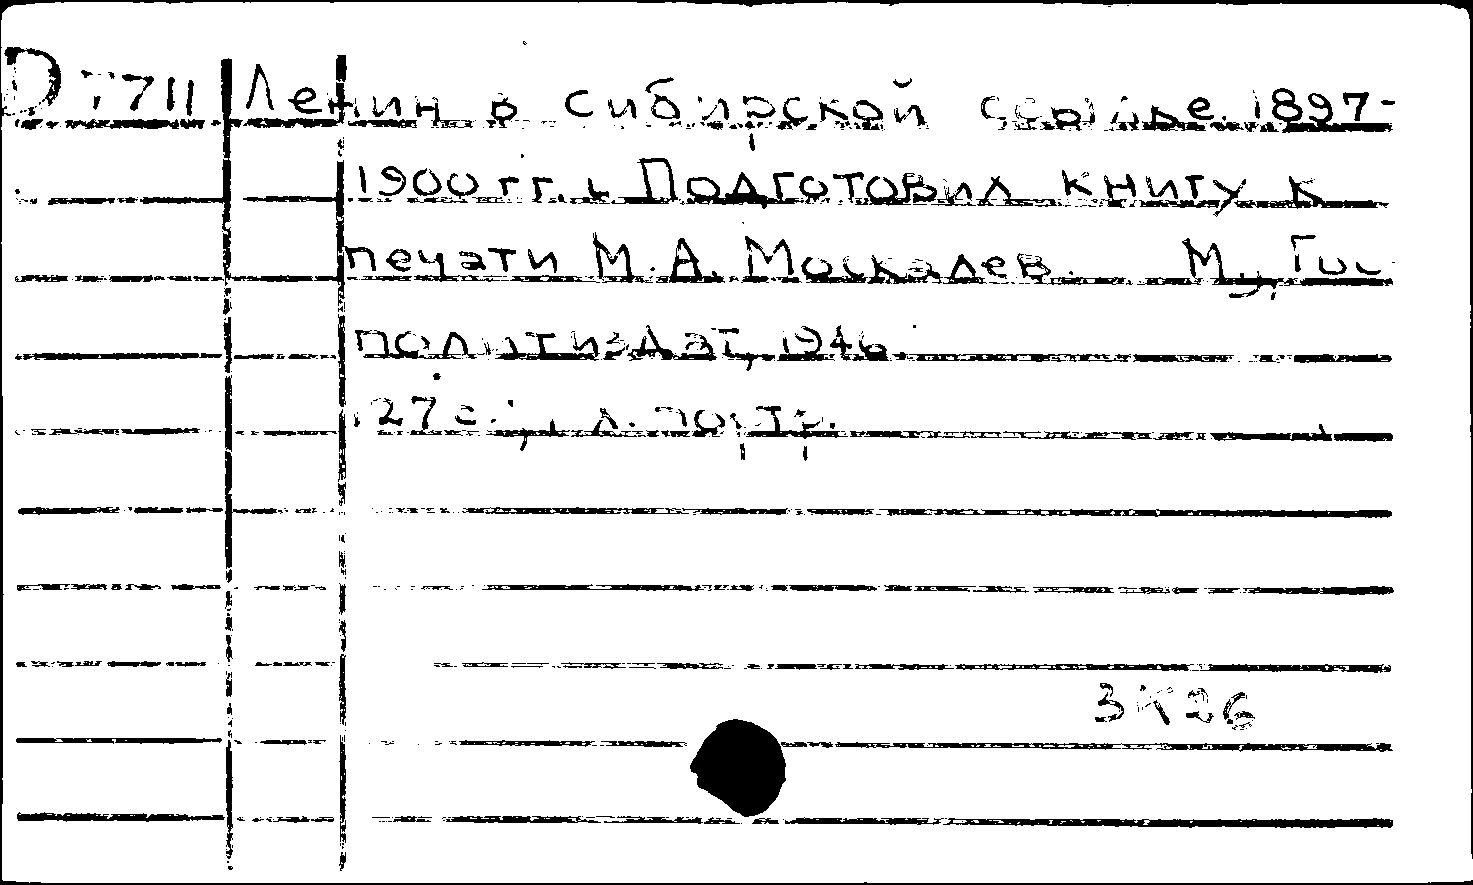 D 7711 Ленин в сибирской ссылке. 1897-
1900 гг. Подготовил книгу к
печати М.А. Москалев. М., Гос
политиздат, 1946.
127 с.; л. портр.
3К26